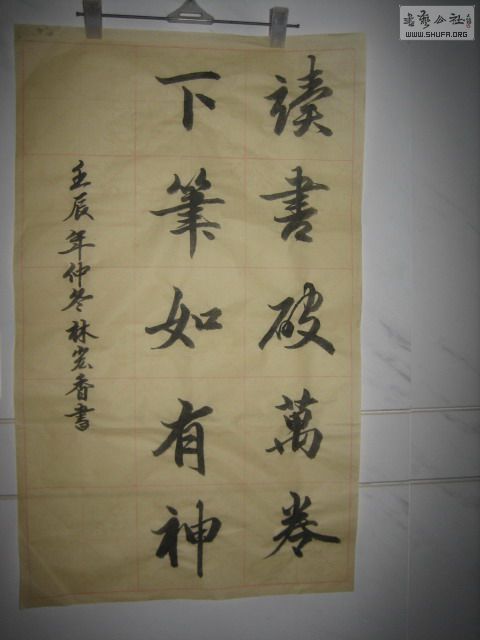 讀書破萬卷
下筆如有神
壬辰年仲冬林宏香書
書藝公社
WWW.SHUFA.ORG